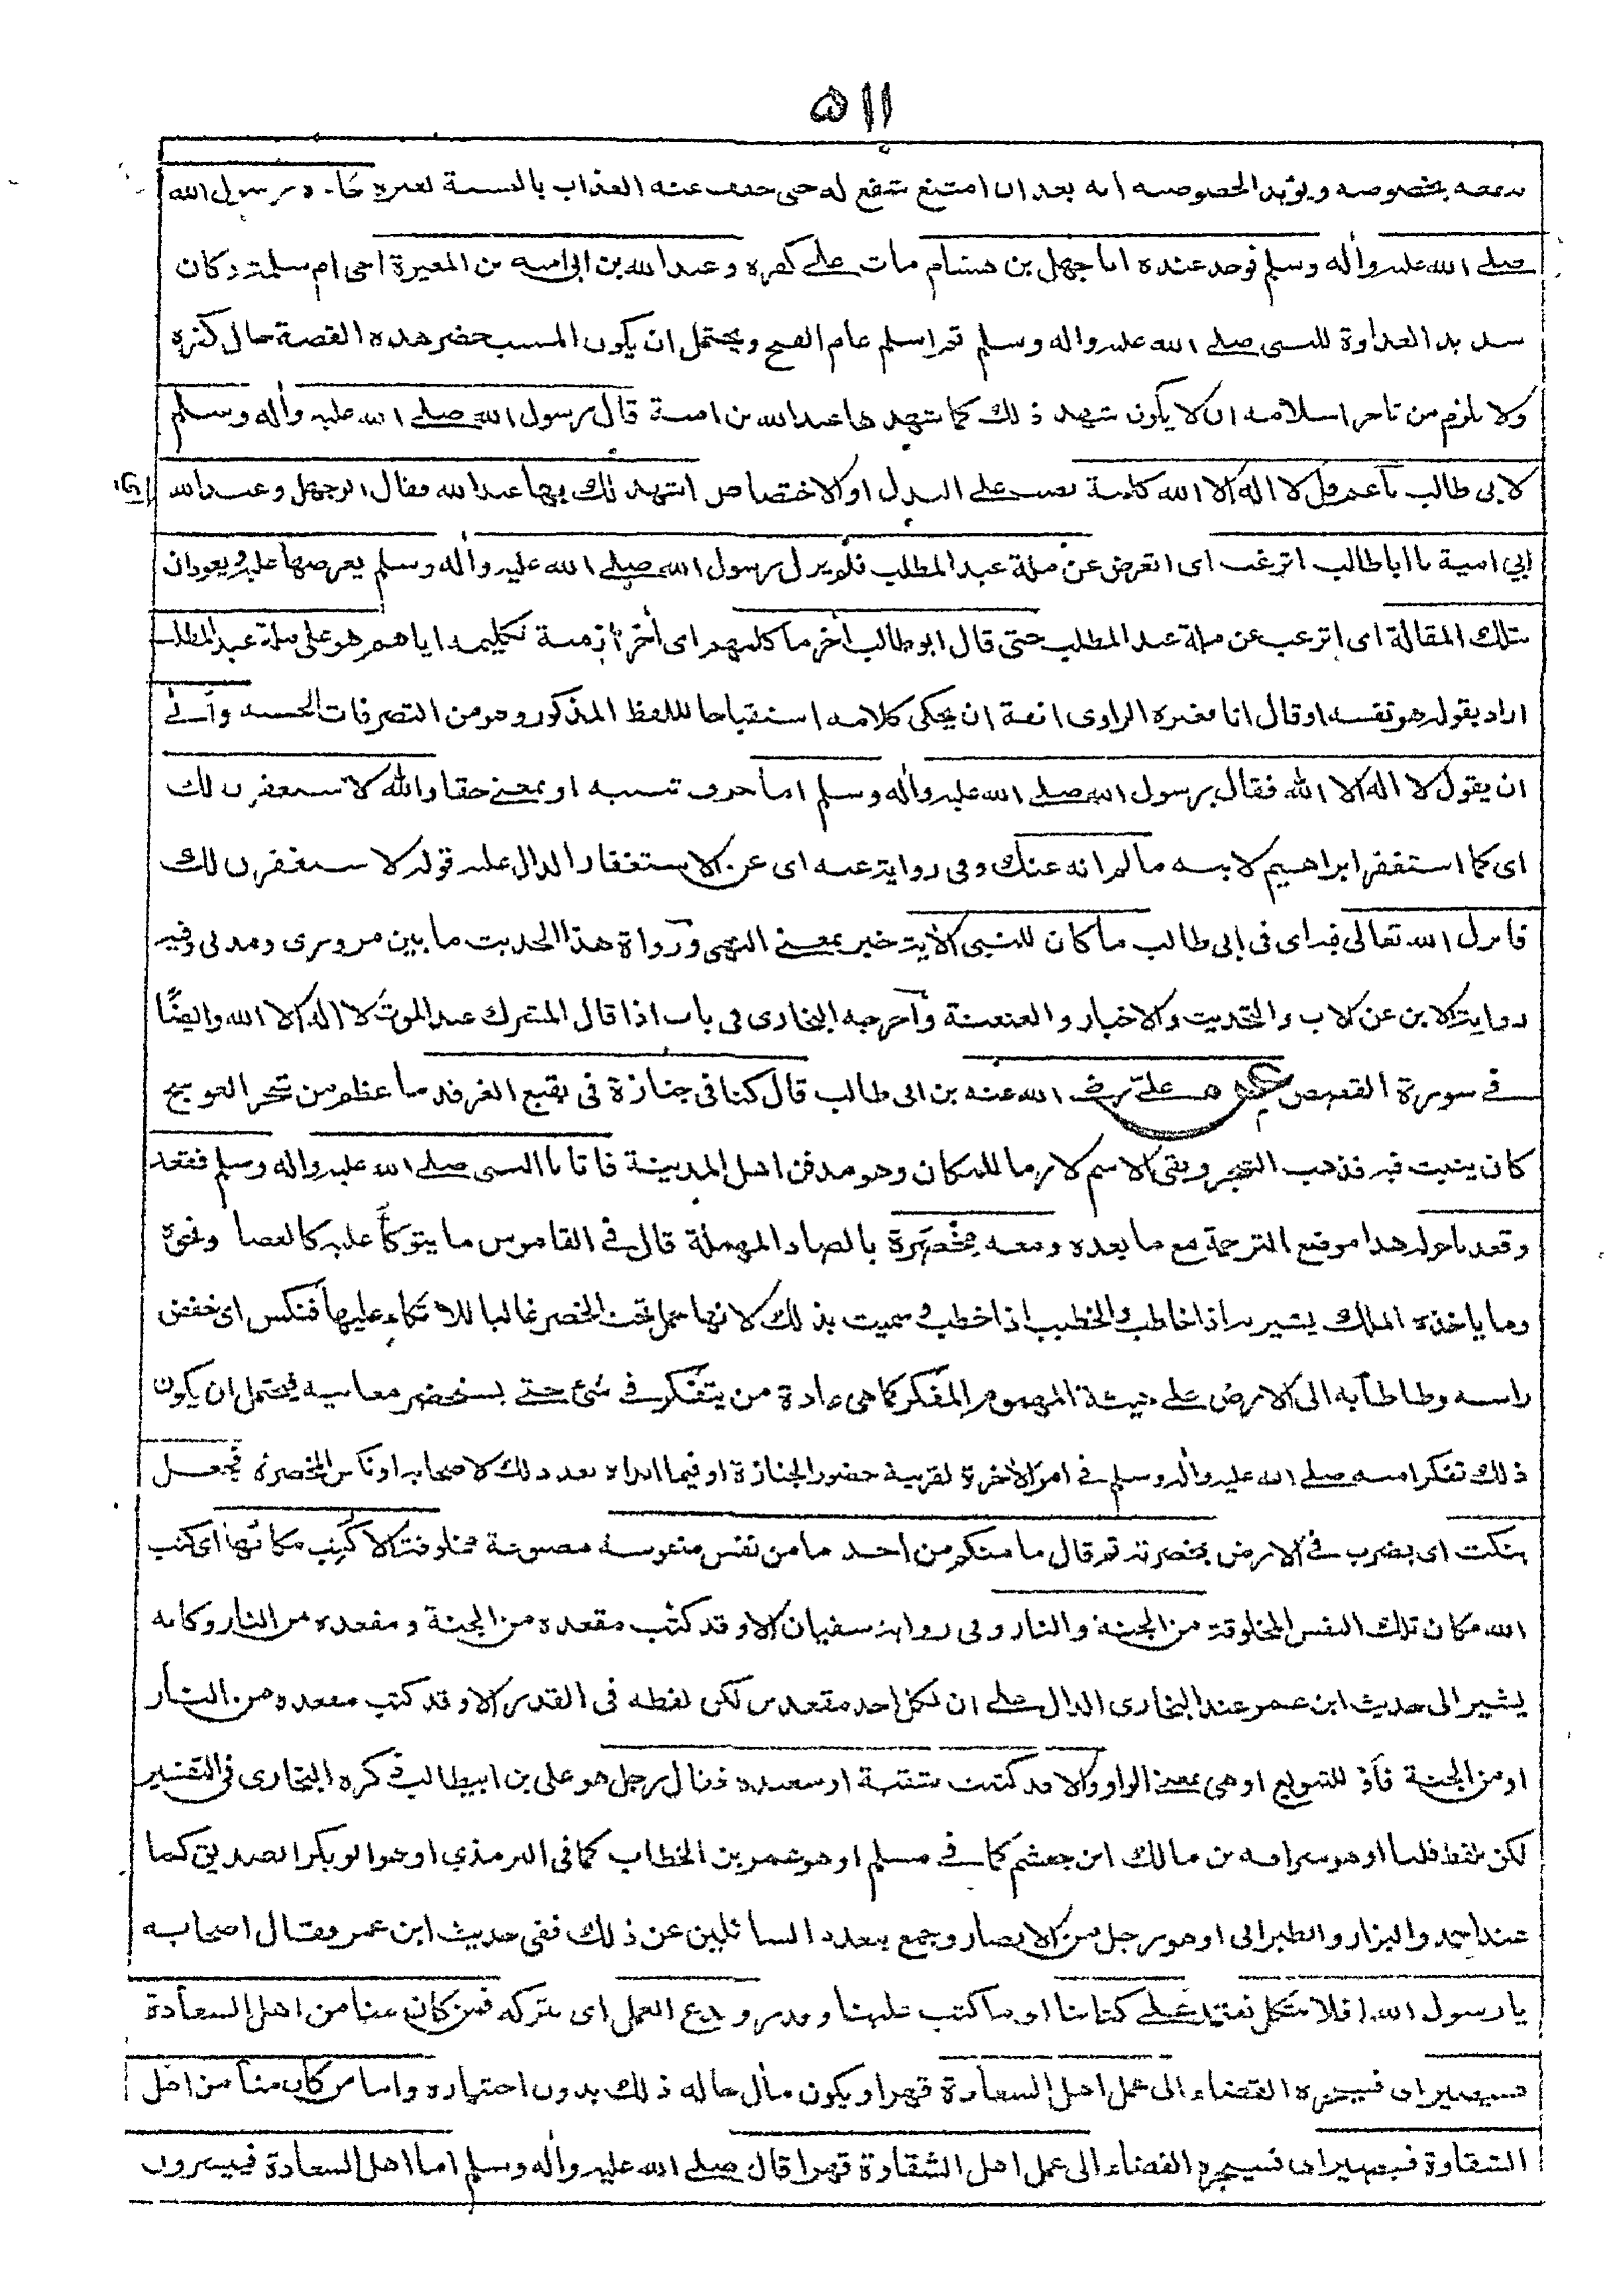 ۵۱۱
بخصوصه ويؤيد الخصوصيه انه بعد ان امتنع شفع له حتى خفف عنه العذاب بالنسبة لغيره رسول الله
صلے الله عليه وأله وسلم فوجد عنده ابا جهل بن هشام مات علے كفره وعبد الله بن ابى اميه بن المغيرة اخى ام سلمة وكان
شديد العداوة للنبى صلے الله عليه واله وسلم ثم اسلم عام الفتح ويحتمل ان يكون المسيب حضر هذه القصة حال كفره
ولا يلزم من تاخر اسلامه ان لا يكون شهد ذلك كما شهدها عبد الله بن امية قال رسول الله صلے الله عليه وأله وسلم
لابى طالب يا عم قل لا اله الا الله كلمة نصب على البدل او الاختصاص اشهد لك بها عند الله فقال ابو جهل وعبد الله
ابى امية يا ابا طالب اترغب اى اتعرض عن ملة عبد المطلب فلم يزل رسول الله صلے الله عليه وأله وسلم يعرضها عليه ويعودان
بتلك المقالة اى اترغب عن ملة عبد المطلب حتى قال ابو طالب أخر ما كلمهم اى أخر ازمنة تكليمه اياهم هو على ملة عبد المطلب
اراد بقوله هو نفسه او قال انا فغيره الراوى انفة ان يحكى كلامه استقباحا للفظ المذكور وهو من التصرفات الحسنه وأبى
ان يقول لا اله الا الله فقال رسول الله صلے الله عليه وأله وسلم اما حرف تنبيه او بمعنے حقا والله لا ستغفرن لك
اى كما استغفر ابراهيم لابيه ما لم انه عنك وفى رواية عنه اى عن الاستغفار الدال عليه قوله لا ستغفرن لك
فانزل الله تعالى فيه اى فى ابى طالب ما كان للنبى الأية خبر بمعنے النهى ورواة هذا الحديث ما بين مروزى ومدنى وفيه
رواية الابن عن الاب والتحديث والاخبار والعنعنة وأخرجه البخارى فى باب اذا قال المشرك عند الموت لا اله الا الله وايضًا
فے سورة القصص علے رضے الله عنه بن ابى طالب قال كنا فى جنازة فى بقيع الغرقد ما عظم من شجر العوسج
كان ينبت فيه فذهب الشجر وبقى الاسم لازما للمكان وهو مدفن اهل المدينة فاتانا النبى صلے الله عليه واله وسلم فقعد
وقعدنا حوله هذا موضع الترجمة مع ما بعده ومعه مخصَرة بالصاد المهملة قال فے القاموس ما يتوكأ عليه كالعصا ونحوه
وما ياخذه الملك يشير به اذا خاطب والخطيب اذا خطب وسميت بذلك لانها تحمل تحت الخصر غالبا للاتكاء عليها فنكس اى خفض
راسه وطاطأ به الى الارض على هيئة المهموم المفكر كما هى عادة من يتفكر فے شئ حتے يستحضر معانيه فيحتمل ان يكون
ذلك تفكرا منه صلے الله عليه وأله وسلم فے امر الأخرة لقرينة حضور الجنازة او فيما ابداه بعد ذلك لاصحابه او نكس المخصرة فجعل
ينكت اى يضرب فے الارض بمخصرته ثم قال ما منكم من احد ما من نفس منفوسة مصنوعة مخلوقة الا كُتِب مكانُها اى كتب
الله مكان تلك النفس المخلوقة من الجنة والنار وفى رواية سفيان الا وقد كتب مقعده من الجنة ومقعده من النار وكانه
يشير الى حديث ابن عمر عند البخارى الدال علے ان لكل احد مقعدين لكن لفظه فى القدر الا وقد كتب مقعده من النار
او من الجنة فأو للتنويع او هى بمعنے الواو والا قد كتبت شقية او سعيده فقال رجل هو على بن ابيطالب ذكره البخارى فى التفسير
لكن بلفظ قلنا او هو سراقه بن مالك ابن جعشم كما فے مسلم او هو عمر بن الخطاب كما فى الترمذى او هو ابو بكر الصديق كما
عند احمد والبزار والطبرانى او هو رجل من الانصار وجمع بتعدد السائلين عن ذلك ففى حديث ابن عمر فقال اصحابه
يا رسول الله افلا نتكل نعتمد علے كتابنا اى ما كتب علينا وقدر وندع العمل اى نتركه فمن كان منا من اهل السعأدة
فسيصير اى فسيجره القضاء الى عمل اهل السعادة قهرا ويكون مأل حاله ذلك بدون اختياره واما من كان منا من اهل
الشقاوة فسيصير اى فسيجره القضاء الى عمل اهل الشقاوة قهرا قال صلے الله عليه وأله وسلم اما اهل السعادة فييسرون